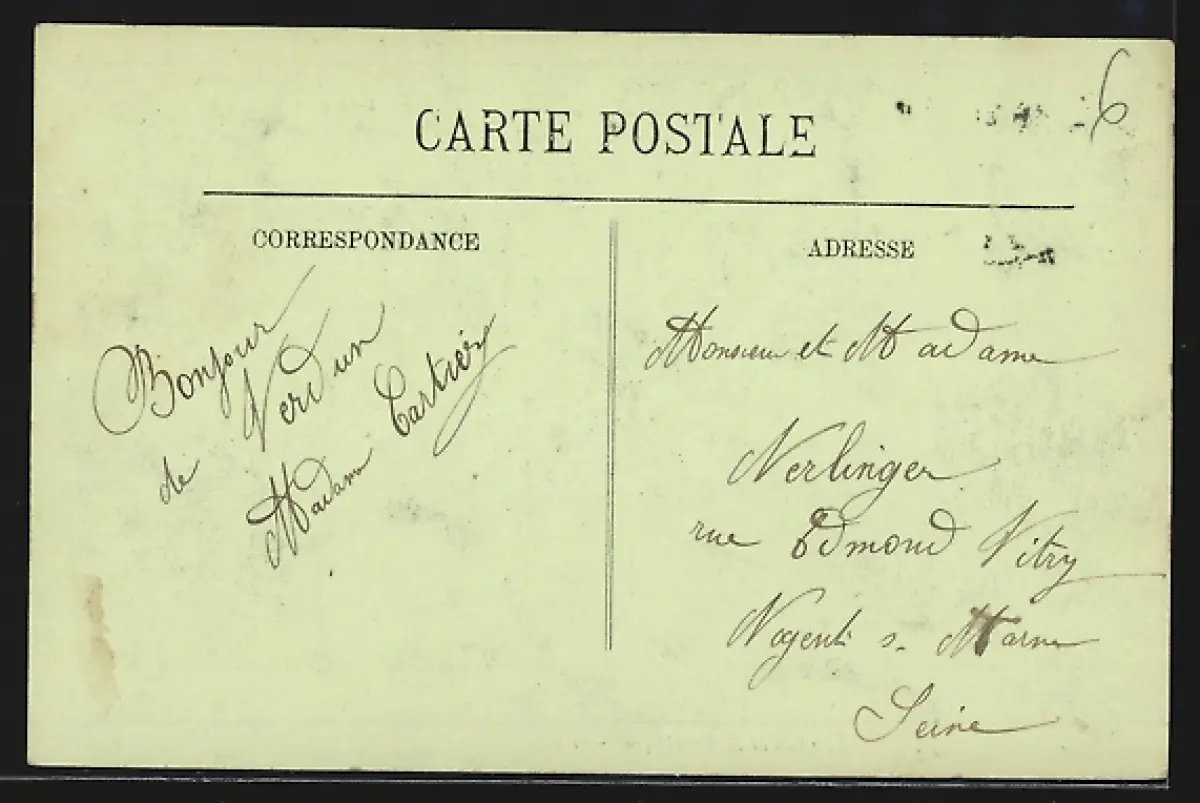 CARTE POSTALE
CORRESPONDANCE
Bonjour
de Verdun
Madame Cartier
ADRESSE
Monsieur et Madame
Nerlinger
rue Edmond Vitry
Nogent s. Marne
Seine
6